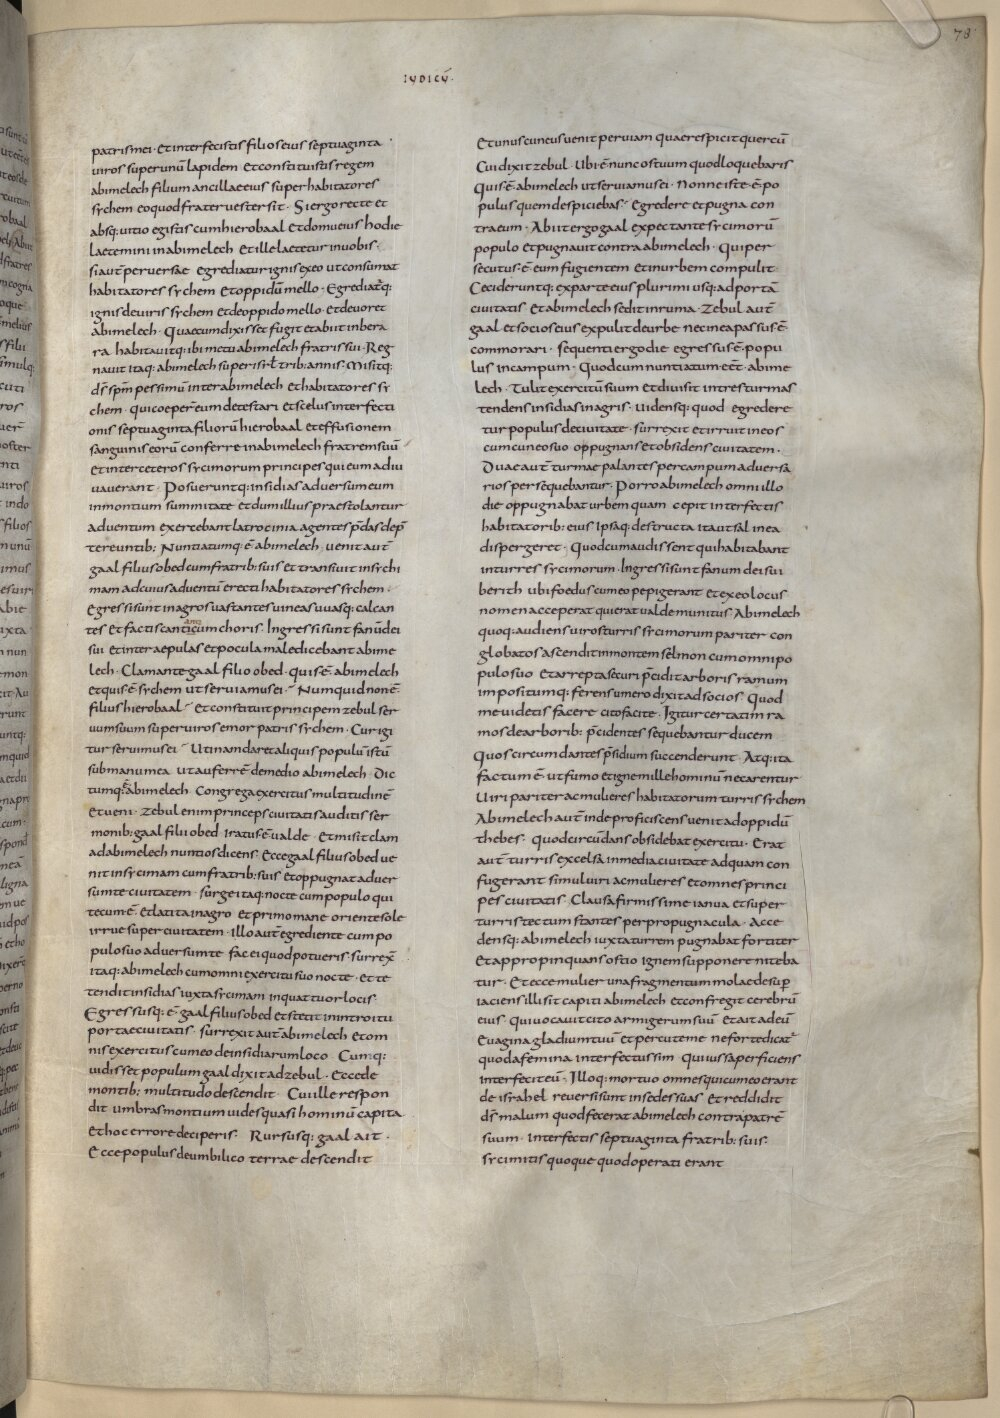 78
IUDICŪ.
patris mei · Et interfecistis filios eius septuaginta
uiros super unū lapidem Et constituistis regem
abimelech filium ancillae eius super habitatores
sychem eo quod frater uester sit · Si ergo recte et
absq: uitio egistis cum hierobaal Et domui eius hodie
laetemini in abimelech Et ille laetetur in uobis ·
si aut̄ peruersae egrediatur ignis ex eo ut consumat
habitatores sychem Et oppidū mello · Egrediatq:
ignis de uiris sychem Et de oppido mello · Et deuoret
abimelech · Quae cum dixisset fugit et abiit in bera
ra habitauitq: ibi metu abimelech fratris sui · Reg
nauit itaq: abimelech super isrl̄ trib: annis · Misitq:
d̄s sp̄m pessimū inter abimelech Et habitatores sy
chem · qui coeperr̄ eum detestari Et scelus interfecti
onis septuaginta filiorū hierobaal et effusionem
sanguinis eorū conferre in abimelech fratrem suū
Et in ceteros sycimorum principes qui eum adiu
uauerant · Posueruntq: insidias aduersum eum
in montium summitate Et dum illius praestolantur
aduentum exercebant latrocinia agentes p̄das de p̄
tereuntib: Nuntiatumq· ē abimelech uenit aut̄
gaal filius obed cum fratrib: suis Et transiuit in sychi
mam ad cuius aduentū erecti habitatores sychem ·
Egressi sunt in agros uastantes uineas uuasq: calcan
tes Et factis canticum choris · Ingressi sunt fanū dei
sui Et inter aepulas et pocula maledicebant abime
lech · Clamante gaal filio obed · quis ē abimelech
et quis ē sychem ut seruiamus ei · Numquid non ē
filius hierobaal Et constituit principem zebul ser
uum suum super uiros emor patris sychem · Cur igi
tur seruimus ei Utinam daret aliquis populū istū
sub manu mea ut auferrē de medio abimelech · Dic
tumq: ē abimelech Congrega exercitus multitudinē
Et ueni · zebul enim princeps ciuitatis auditis ser
monib: gaal filii obed iratus ē ualde Et misit clam
ad abimelech nuntios dicens · Ecce gaal filius obed ue
nit in sycimam cum fratrib: suis Et oppugnat aduer
sum te ciuitatem · surge itaq: nocte cum populo qui
tecum ē · Et latita in agro Et primo mane oriente sole
irrue super ciuitatem · Illo aut̄ egrediente cum po
pulo suo aduersum te fac ei quod potueris · surrex̄
itaq: abimelech cum omni exercitu suo nocte · Et te
tendit insidias iuxta sycimam in quattuor locis ·
Egressusq: ē gaal filius obed Et stetit in introitu
portae ciuitatis · surrexit aut̄ abimelech Et om
nis exercitus cum eo de insidiarum loco Cumq:
uidisset populum gaal dixit ad zebul · Ecce de
montib: multitudo descendit Cui ille respon
dit umbras montium uides quasi hominū capita
Et hoc errore deciperis · Rursusq: gaal ait ·
Ecce populus de umbilico terrae descendit
Et unus cuneus uenit per uiam quae respicit quercū
Cui dixit zebul · Ubi ē nunc os tuum quod loquebaris
Quis ē abimelech ut seruiamus ei · Nonne iste ē po
pulus quem despiciebas · Egredere et pugna con
tra eum · Abiit ergo gaal expectante sycimorū
populo Et pugnauit contra abimelech · Qui per
secutus ē eum fugientem Et in urbem compulit ·
Cecideruntq: ex parte eius plurimi usq: ad portā
ciuitatis Et abimelech sedit in ruma · Zebul aut̄
gaal et socios eius expulit de urbe nec in ea passus ē
commorari · sequenti ergo die egressus ē popu
lus in campum · Quod cum nuntiatum eēt abime
lech · Tulit exercitū suum Et diuisit in tres turmas
tendens insidias in agris · Uidensq: quod egredere
tur populus de ciuitate · surrexit et irruit in eos
cum cuneo suo oppugnans et obsidens ciuitatem ·
Duae aut̄ turmae palantes per campum aduersa
rios persequebantur · Porro abimelech omni illo
die oppugnabat urbem quam cepit interfectis
habitatorib: eius Ipsaq: destructa ita ut sal in ea
dispergeret · Quod cum audissent qui habitabant
in turres sycimorum · Ingressi sunt fanum dei sui
berith ubi foedus cum eo pepigerant Et ex eo locus
nomen acceperat qui erat ualde munitus · Abimelech
quoq: audiens uiros turris sycimorum pariter con
globatos ascendit in montem selmon cum omni po
pulo suo Et arrepta securi p̄cidit arboris ramum
impositumq: ferens umero dixit ad socios · Quod
me uidetis facere cito facite · Igitur certatim ra
mos de arborib: p̄cidentes sequebantur ducem
Quos circumdantes p̄sidium succenderunt · Atq: ita
factum ē ut fumo et igne mille hominū necarentur
Uiri pariter ac mulieres habitatorum turris sychem
Abimelech aut̄ inde proficiscens uenit ad oppidū
thebes · Quod circūdans obsidebat exercitu · Erat
aut̄ turris excelsa in media ciuitate ad quam con
fugerant simul uiri ac mulieres et omnes princi
pes ciuitatis Clausa firmissime ianua et super
turris tectum stantes per propugnacula · Acce
densq: abimelech iuxta turrem pugnabat fortiter
Et appropinquans ostio ignem supponere niteba
tur · Et ecce mulier una fragmentum molae desup̄
iaciens illisit capiti abimelech et confregit cerebrū
eius Qui uocauit cito armigerum suū Et ait ad eū
Euagina gladium tuū Et percute me ne forte dicat᷑
quod a femina interfectus sim Qui iussa perficiens
interfecit eū · Illoq: mortuo omnes qui cum eo erant
de israhel reuersi sunt in sedes suas Et reddidit
d̄s malum quod fecerat abimelech contra patrē
suum · interfectis septuaginta fratrib: suis ·
sycimitis quoque quod operati erant